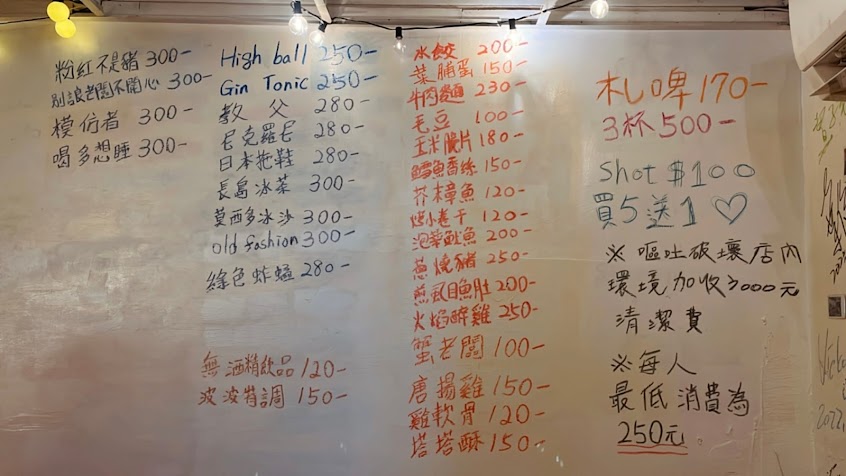 粉紅不是豬 300-
別讓老闆不開心 300-
模仿者 300-
喝多想睡 300-
High ball 250-
Gin Tonic 250-
教父 280-
尼克羅尼 280-
日本拖鞋 280-
長島冰茶 300-
莫西多冰沙 300-
old fashion 300-
綠色蚱蜢 280-
無酒精飲品 120-
波波特調 150-
水餃 200-
菜脯蛋 150-
牛肉麵 230-
毛豆 100-
玉米脆片 180-
鱈魚香絲 150-
芥末章魚 120-
烤小卷干 120-
泡菜魷魚 200-
蔥燒豬 250-
煎虱目魚肚 200-
火焰醉雞 250-
蟹老闆 100-
唐揚雞 150-
雞軟骨 120-
塔塔酥 150-
札啤 170-
3杯 500-
Shot $100
買5送1♡
※嘔吐破壞店內
環境加收3000元
清潔費
※每人
最低消費為
250元